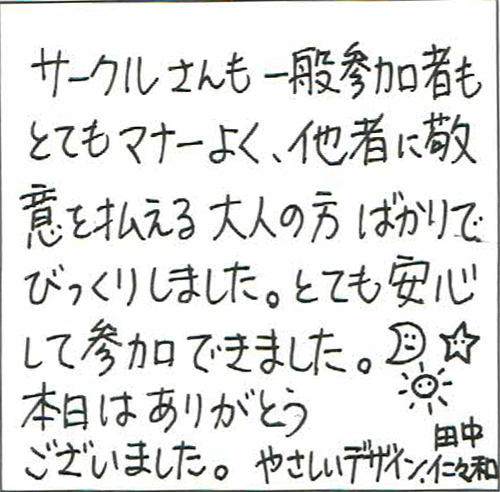 サークルさんも一般参加者も
とてもマナーよく、他者に敬
意を払える大人の方ばかりで
びっくりしました。とても安心
して参加できました。
本日はありがとう
ございました。やさしいデザイン.
田中
仁々和